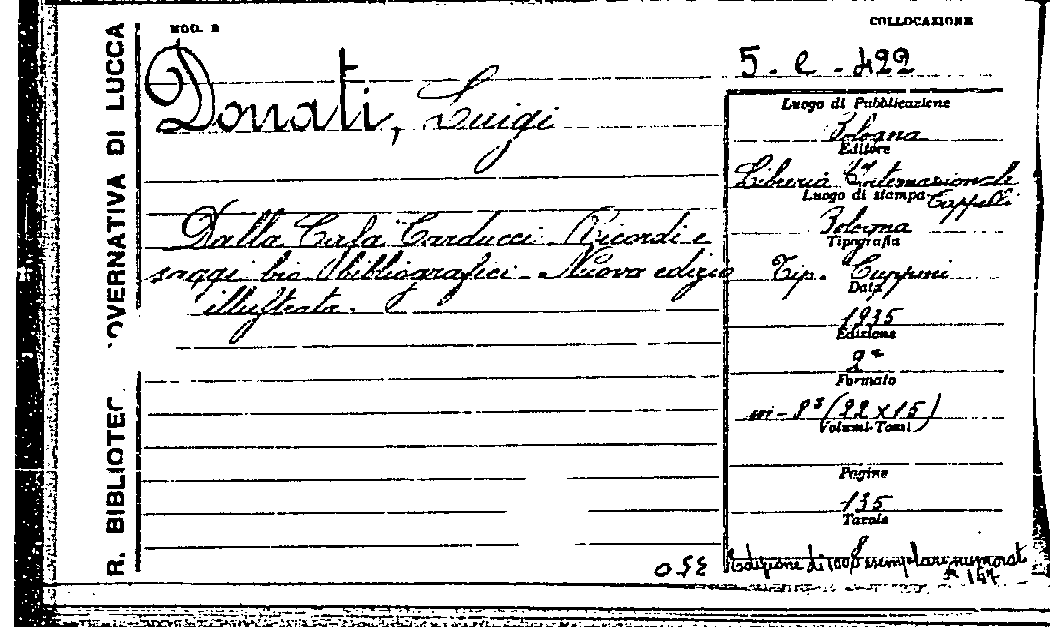 MOD. B
COLLOCAZIONE
5. e. 422
R. BIBLIOTEC OVERNATIVA DI LUCCA
Donati, Luigi
Dalla Casa Carducci - Ricordi e
saggi bio bibliografici - Nuova edizio
illustrata.
Luogo di Pubblicazione
Bologna
Editore
Libreria Internazionale
Cappelli
Luogo di stampa
Bologna
Tipografia
Tip. Cuppini
Data
1935
Edizione
2ª
Formato
in-8° (22 x 15)
Volumi-Tomi
Pagine
135
Tavole
8
Edizione di 1000 esemplari numerati
n. 147